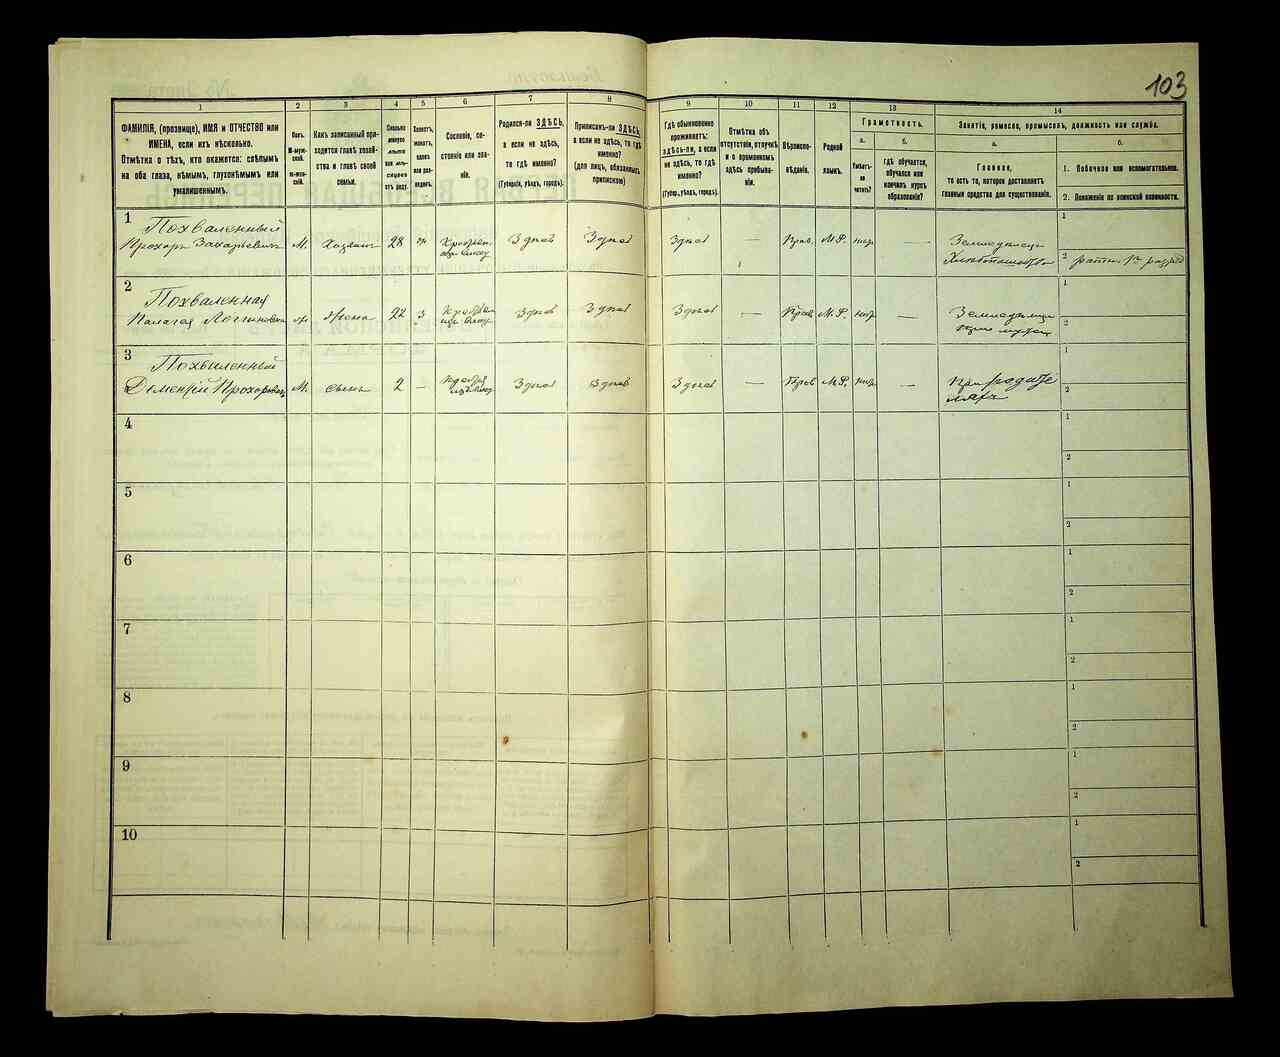 103
1 2 3 4 5 6 7 8 9 10 11 12 13 14
ФАМИЛІЯ, (прозвище), ИМЯ и ОТЧЕСТВО или
ИМЕНА, если ихъ нѣсколько.
Отмѣтка о тѣхъ, кто окажется: слѣпымъ
на оба глаза, нѣмымъ, глухонѣмымъ или
умалишеннымъ.
Полъ.
М-мужской.
Ж-женскій.
Какъ записанный приходится главѣ хозяйства и главѣ своей
семьи.
Сколько
минуло
лѣтъ
или мѣсяцевъ
отъ роду.
Холостъ,
женатъ,
вдовъ
или разведенъ.
Сословіе, состояніе или званіе.
Родился-ли ЗДѢСЬ,
а если не здѣсь,
то гдѣ именно?
(Губернія, уѣздъ, городъ).
Приписанъ-ли ЗДѢСЬ,
а если не здѣсь, то гдѣ
именно?
(для лицъ, обязанныхъ
припискою)
Гдѣ обыкновенно
проживаетъ:
здѣсь-ли, а если
не здѣсь, то гдѣ
именно?
(Губер., уѣздъ, городъ).
Отмѣтка объ
отсутствіи, отлучкѣ
и о временномъ
здѣсь пребываніи.
Вѣроисповѣданіе.
Родной
языкъ.
Грамотность.
а.
Умѣетъ-ли
читать?
б.
Гдѣ обучается,
обучался или
кончилъ курсъ
образованія?
Занятіе, ремесло, промыселъ, должность или служба.
а.
Главное,
то есть то, которое доставляетъ
главныя средства для существованія.
б.
1. Побочное или вспомогательное.
2. Положеніе по воинской повинности.
1
Похваленный
Прохоръ Захарьевичъ М. Хозяинъ 28 ж Здѣсь Здѣсь Здѣсь — Прав. М.Р. нѣтъ — Земледѣлецъ
Хлѣбопашество
1
2
2
Похваленная
Палагея Логиновна ж жена 22 З Здѣсь Здѣсь Здѣсь — Прав. М.Р. нѣтъ —
1
2
3
Похваленный
Дементій Прохоровъ М. сынъ 2 — Здѣсь Здѣсь Здѣсь — Прав М.Р. нѣтъ — При родителяхъ
1
2
4
1
2
5
1
2
6
1
2
7
1
2
8
1
2
9
1
2
10
1
2